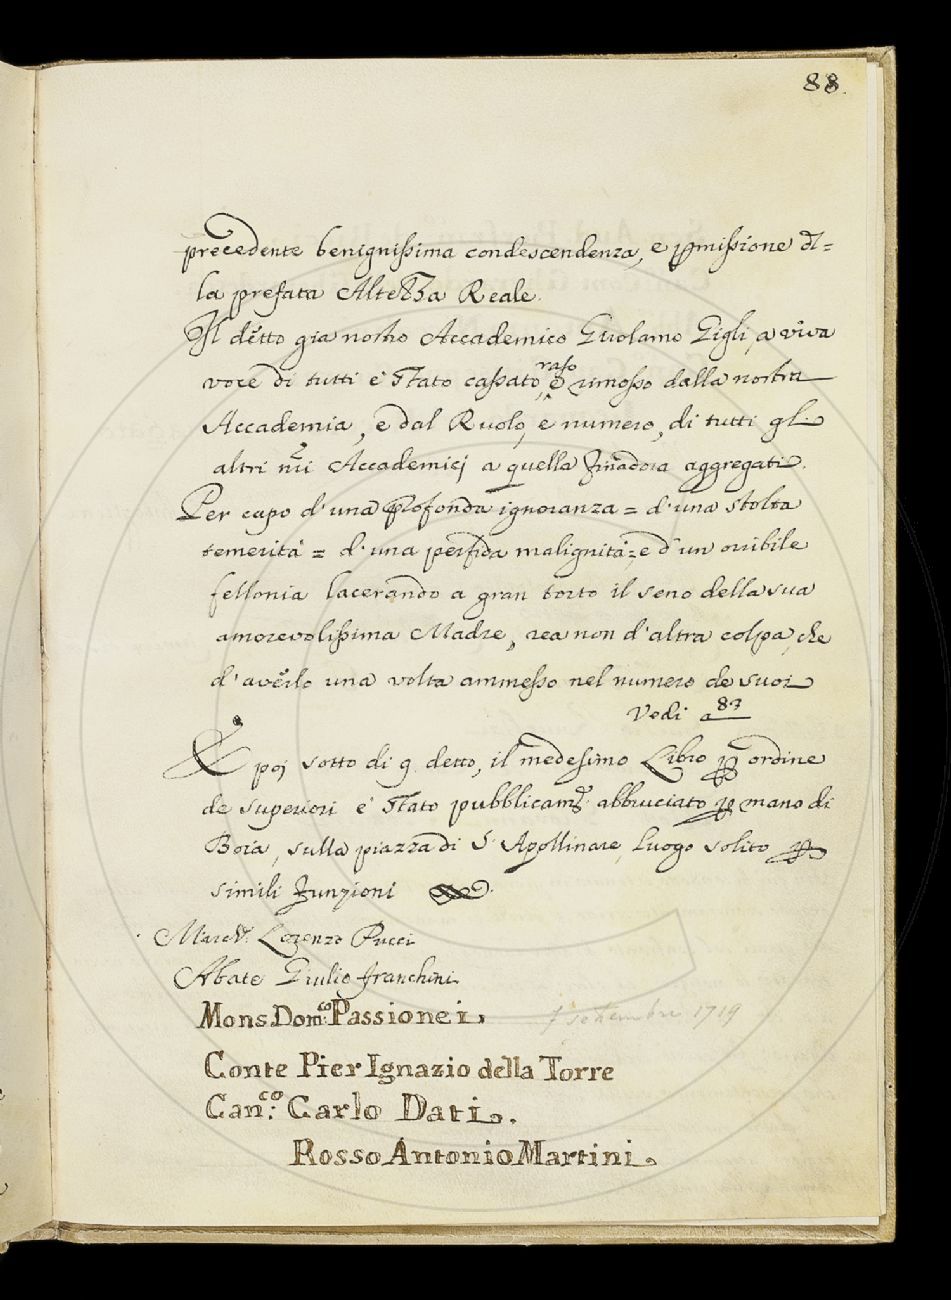 88.
precedente benignissima condescendenza, e p̱missione del=
la prefata Altezza Reale.
Il detto gia nostro Accademico Girolamo Gigli, a viva
voce di tutti è stato cassato, raso e rimosso dalla nostra
Accademia, e dal Ruolo, e numero, di tutti gli
altri nři Accademici a quella aggregati.
Per capo d'una Profonda ignoranza = d'una stolta
temerità = d'una perfida malignità = e d'un orribile
fellonia lacerando a gran torto il seno della sua
amorevolissima Madre, rea non d'altra colpa, che
d'averlo una volta ammesso nel numero de suoi
Vedi a 87
E poi sotto di 9. detto, il medesimo Libro p̱ ordine
de superiori è stato pubblicam.te abbruciato p̱ mano di
Boia, sulla piazza di S. Apollinare, Luogo solito p̱
simili Funzioni
March. Lorenzo Pucci
Abate Giulio Franchini
Mons. Dom.co Passionei.
7 settembre 1719
Conte Pier Ignazio della Torre
Can.co Carlo Dati.
Rosso Antonio Martini.